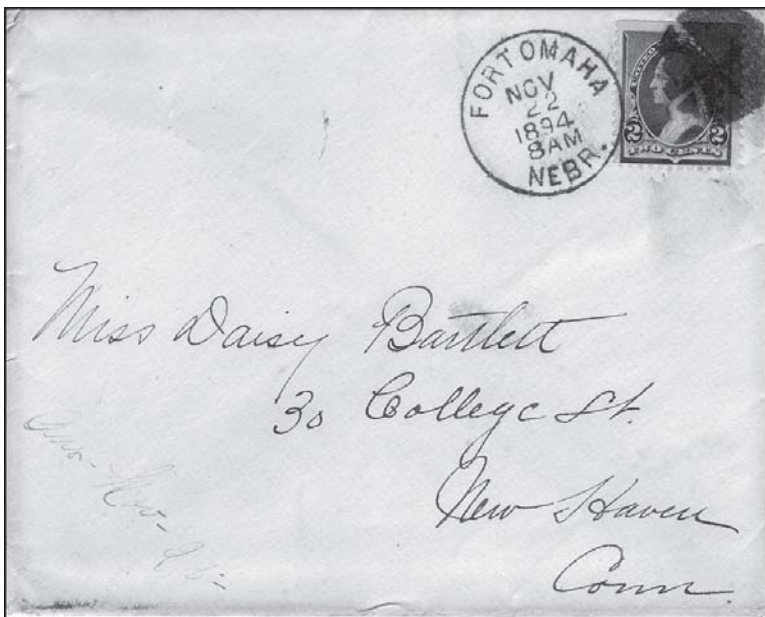 FORT OMAHA
NOV
22
1894
8AM
NEBR.
UNITED
2 2
TWO CENTS
Miss Daisy Bartlett
30 College St.
New Haven
Conn.